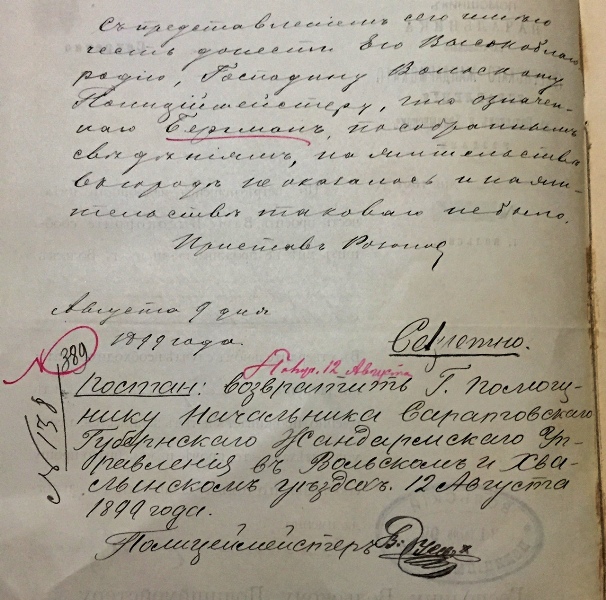 Съ представленіемъ сего имѣю
честь донести Его Высокоблаго-
родію, Господину Вольскому
Полицiймейстеру, что означен-
наго Бергманъ, по собраннымъ
свѣдѣніямъ, на жительствѣ
въ городѣ не оказалось и на жи-
тельствѣ таковаго не было.
Приставъ
Августа 9 дня
1899 года.
Секретно.
№ 389
Получ. 12 Августа
№ 138
Постан: Возвратить Г. Помощ-
нику Начальника Саратовскаго
Губернскаго Жандармскаго Уп-
равленія въ Вольскомъ и Хва-
лынскомъ уѣздахъ. 12 Августа
1899 года.
Полицеймейстеръ